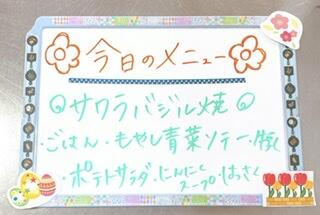 今日のメニュー
◎サワラバジル焼◎
・ごはん・もやし青菜ソテー・豚汁
・ポテトサラダ・にんにくスープ・はっさく